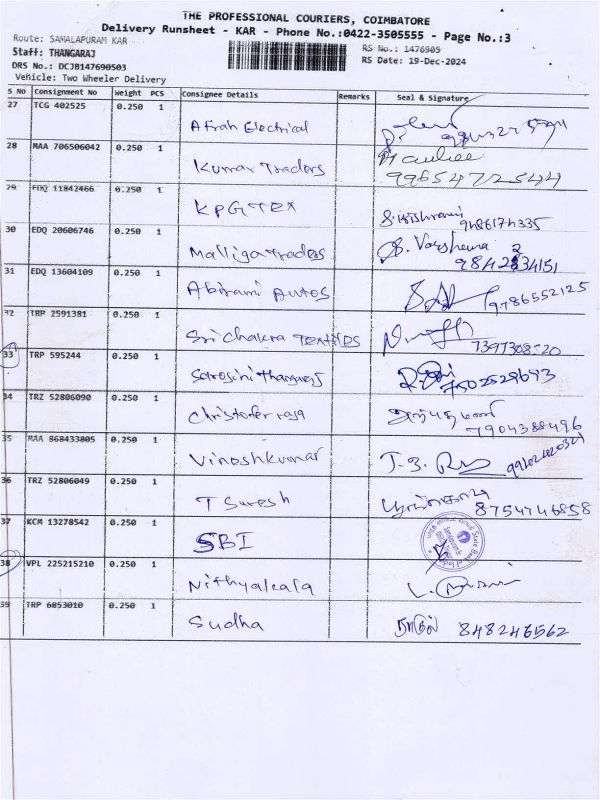 THE PROFESSIONAL COURIERS, COIMBATORE
Delivery Runsheet - KAR - Phone No.:0422-3505555 - Page No.:3
Route: SAMALAPURAM KAR
RS No.: 1476905
Staff: THANGARAJ
RS Date: 19-Dec-2024
DRS No.: DCJ8147690503
Vehicle: Two Wheeler Delivery
S No Consignment No Weight PCS Consignee Details Remarks Seal & Signature
27 TCG 402525 0.250 1
Afrah Electrical
28 MAA 706506042 0.250 1
Kumar Traders 9965472544
29 EDQ 11842466 0.250 1
KPG TEX 9486174335
30 EDQ 20606746 0.250 1
Malliga Traders S. Varsheena
31 EDQ 13604109 0.250 1
Abirami Autos 9786552125
32 TRP 2591381 0.250 1
Sri Chakra TEXTILES 7397308520
33 TRP 595244 0.250 1
Sarosini thangaraj 7502529643
34 TRZ 52806090 0.250 1
Christofer raja 7904388496
35 MAA 868433805 0.250 1
Vinoshkumar
36 TRZ 52806049 0.250 1
T Suresh 8754746858
37 KCM 13278542 0.250 1
SBI State Bank of India
38 VPL 225215210 0.250 1
Nithyakala
39 TRP 6853010 0.250 1
Sudha 848246562